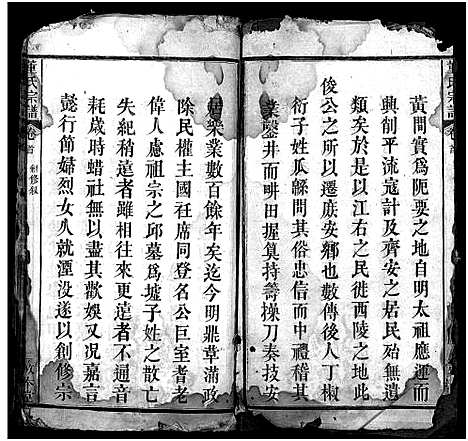 黃間實爲阨要之地自明太祖應運而
興削平流寇計及齊安之居民殆無遺
類矣於是以江右之民徙西陵之地我
俊公之所以遷庻安鄉也數傳後人丁椒
衍子姓瓜緜間其俗忠信而中禮稽其
業鑿井而畊田握算持籌操刀奏技安
居樂業數百餘年矣迄今明鼎革滿政
除民權主國社席同登名公巨室耆老
偉人慮祖宗之邱墓爲墟子姓之散亡
失紀稍遠者雖相往來更遠者不通音
耗歲時蜡社無以盡其歡娛又况嘉言
懿行節婦烈女八就湮没遂以創修宗
董氏宗譜
卷首
創修叙